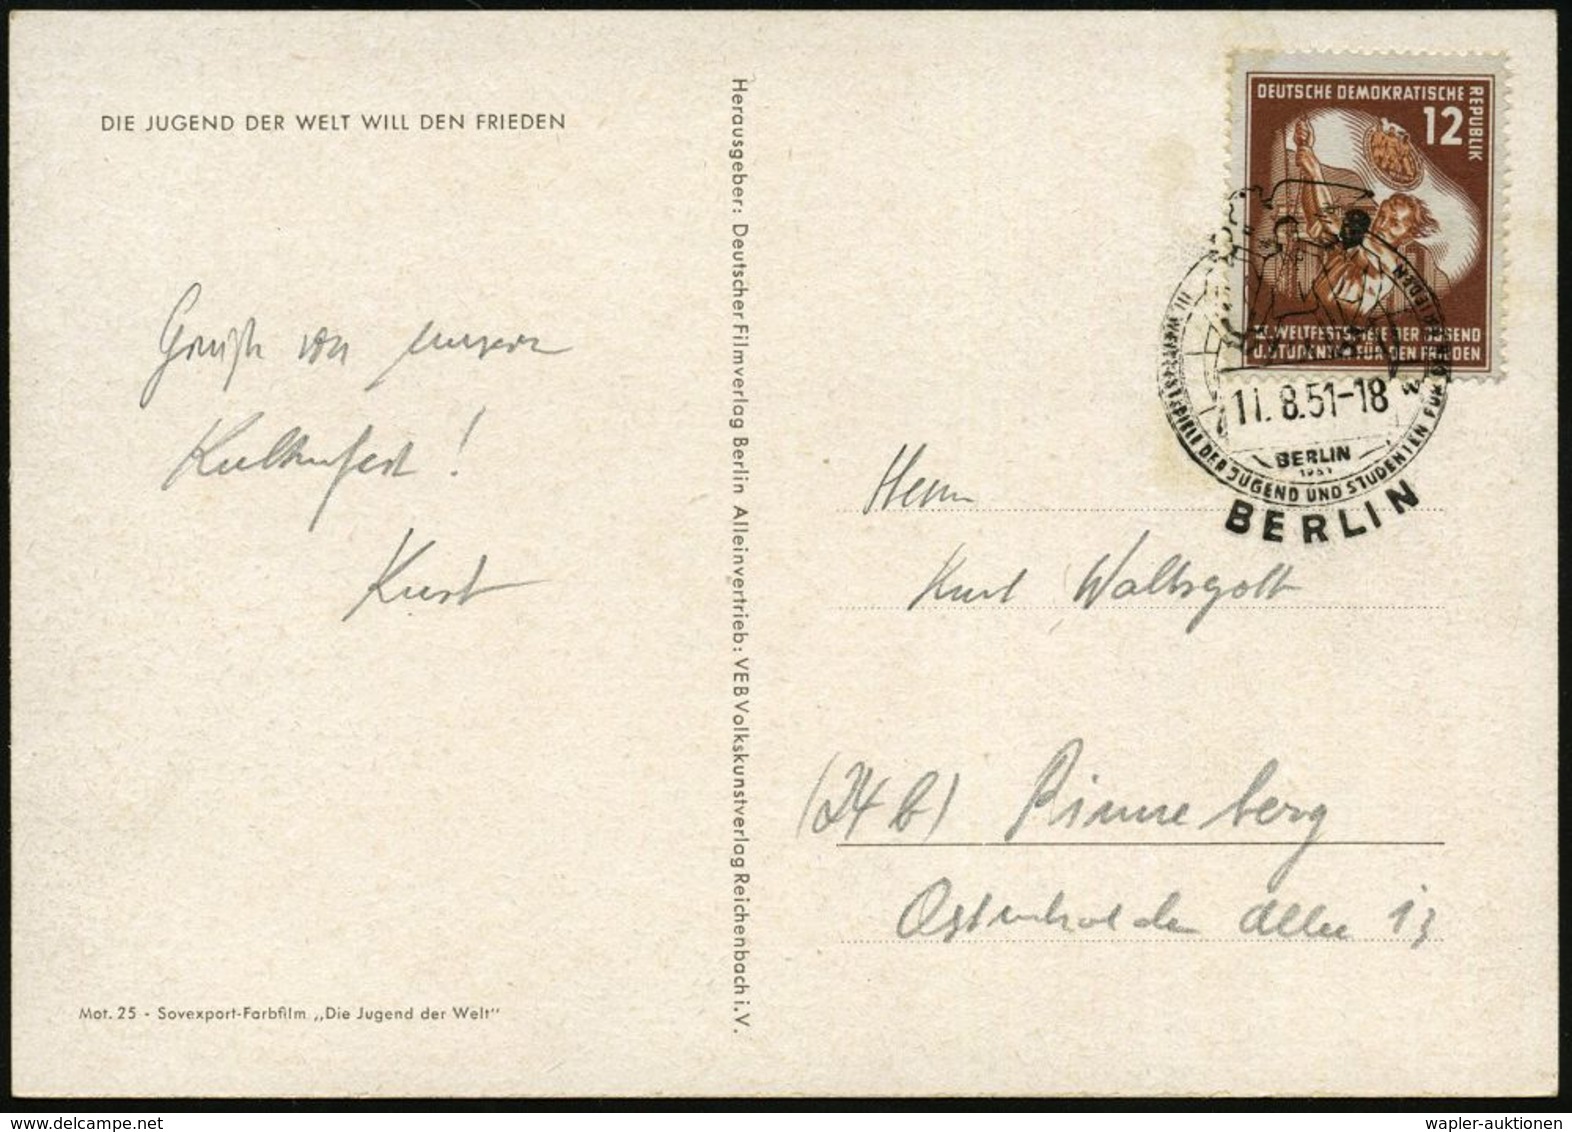 DIE JUGEND DER WELT WILL DEN FRIEDEN
Grüße von unserm
Kulturfest!
Kurt
Mot. 25 - Sovexport-Farbfilm „Die Jugend der Welt"
Herausgeber: Deutscher Filmverlag Berlin Alleinvertrieb: VEB Volkskunstverlag Reichenbach i. V.
DEUTSCHE DEMOKRATISCHE
REPUBLIK
12
III. WELTFESTSPIELE DER JUGEND
U. STUDENTEN FÜR DEN FRIEDEN
III. WELTFESTSPIELE DER JUGEND UND STUDENTEN FÜR DEN FRIEDEN
11.8.51-18
BERLIN
1951
BERLIN
Herrn
Kurt
(24 b) Pinneberg
13
wapler-auktionen